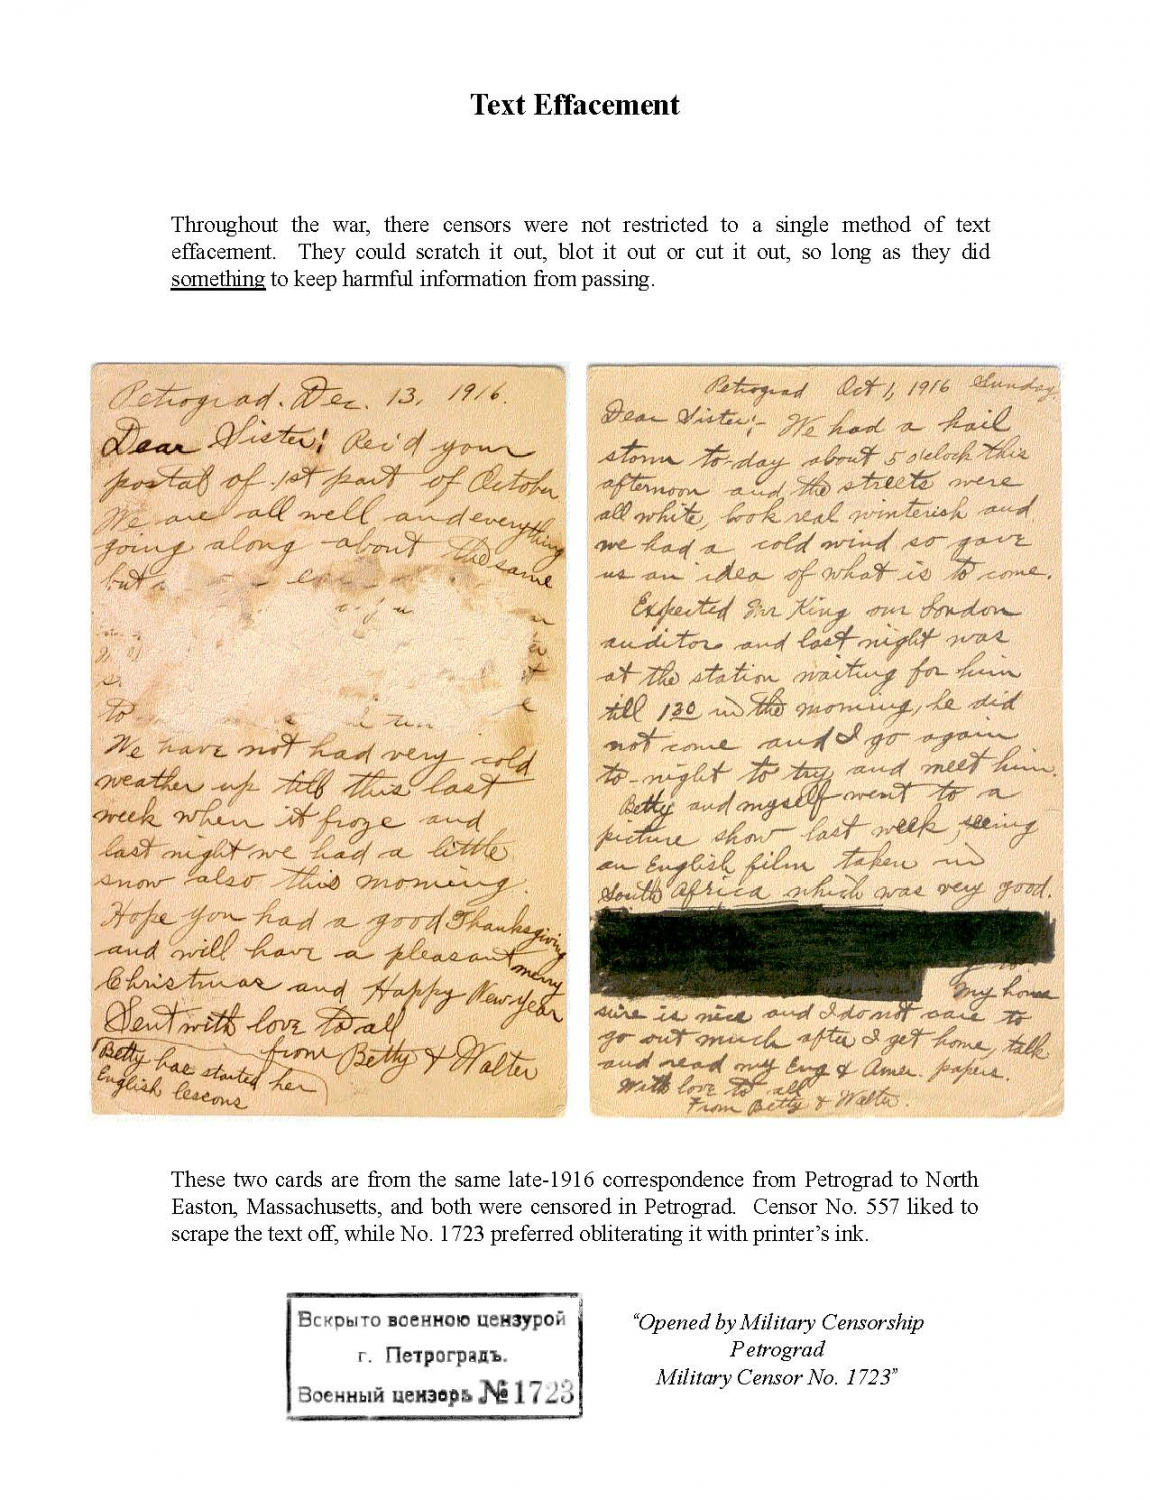 Text Effacement
Throughout the war, there censors were not restricted to a single method of text
effacement. They could scratch it out, blot it out or cut it out, so long as they did
something to keep harmful information from passing.
Petrograd. Dec. 13, 1916.
Dear Sister! Rec'd your
postal of 1st part of October
We are all well and everything
going along about the same
but
to
We have not had very cold
weather up till this last
week when it froze and
last night we had a little
snow also this morning.
Hope you had a good Thanksgiving
and will have a pleasant merry
Christmas and Happy New Year
Sent with love to all
from Betty & Walter
Betty has started her
English lescons
Petrograd Oct 1, 1916 Sunday.
Dear Sister:- We had a hail
storm to-day about 5 oclock this
afternoon and the streets were
all white, look real winterish and
we had a cold wind so gave
us an idea of what is to come.
Expected Mr King our London
auditor and last night was
at the station waiting for him
till 130 in the morning, he did
not come and I go again
to-night to try and meet him.
Betty and myself went to a
picture show last week, seeing
an English film taken in
South Africa which was very good.
My home
sure is nice and I do not care to
go out much after I get home, talk
and read my Eng & Amer. papers.
With love to all
From Betty & Walter.
These two cards are from the same late-1916 correspondence from Petrograd to North
Easton, Massachusetts, and both were censored in Petrograd. Censor No. 557 liked to
scrape the text off, while No. 1723 preferred obliterating it with printer's ink.
Вскрыто военною цензурой
г. Петроградъ.
Военный цензоръ №1723
"Opened by Military Censorship
Petrograd
Military Censor No. 1723"